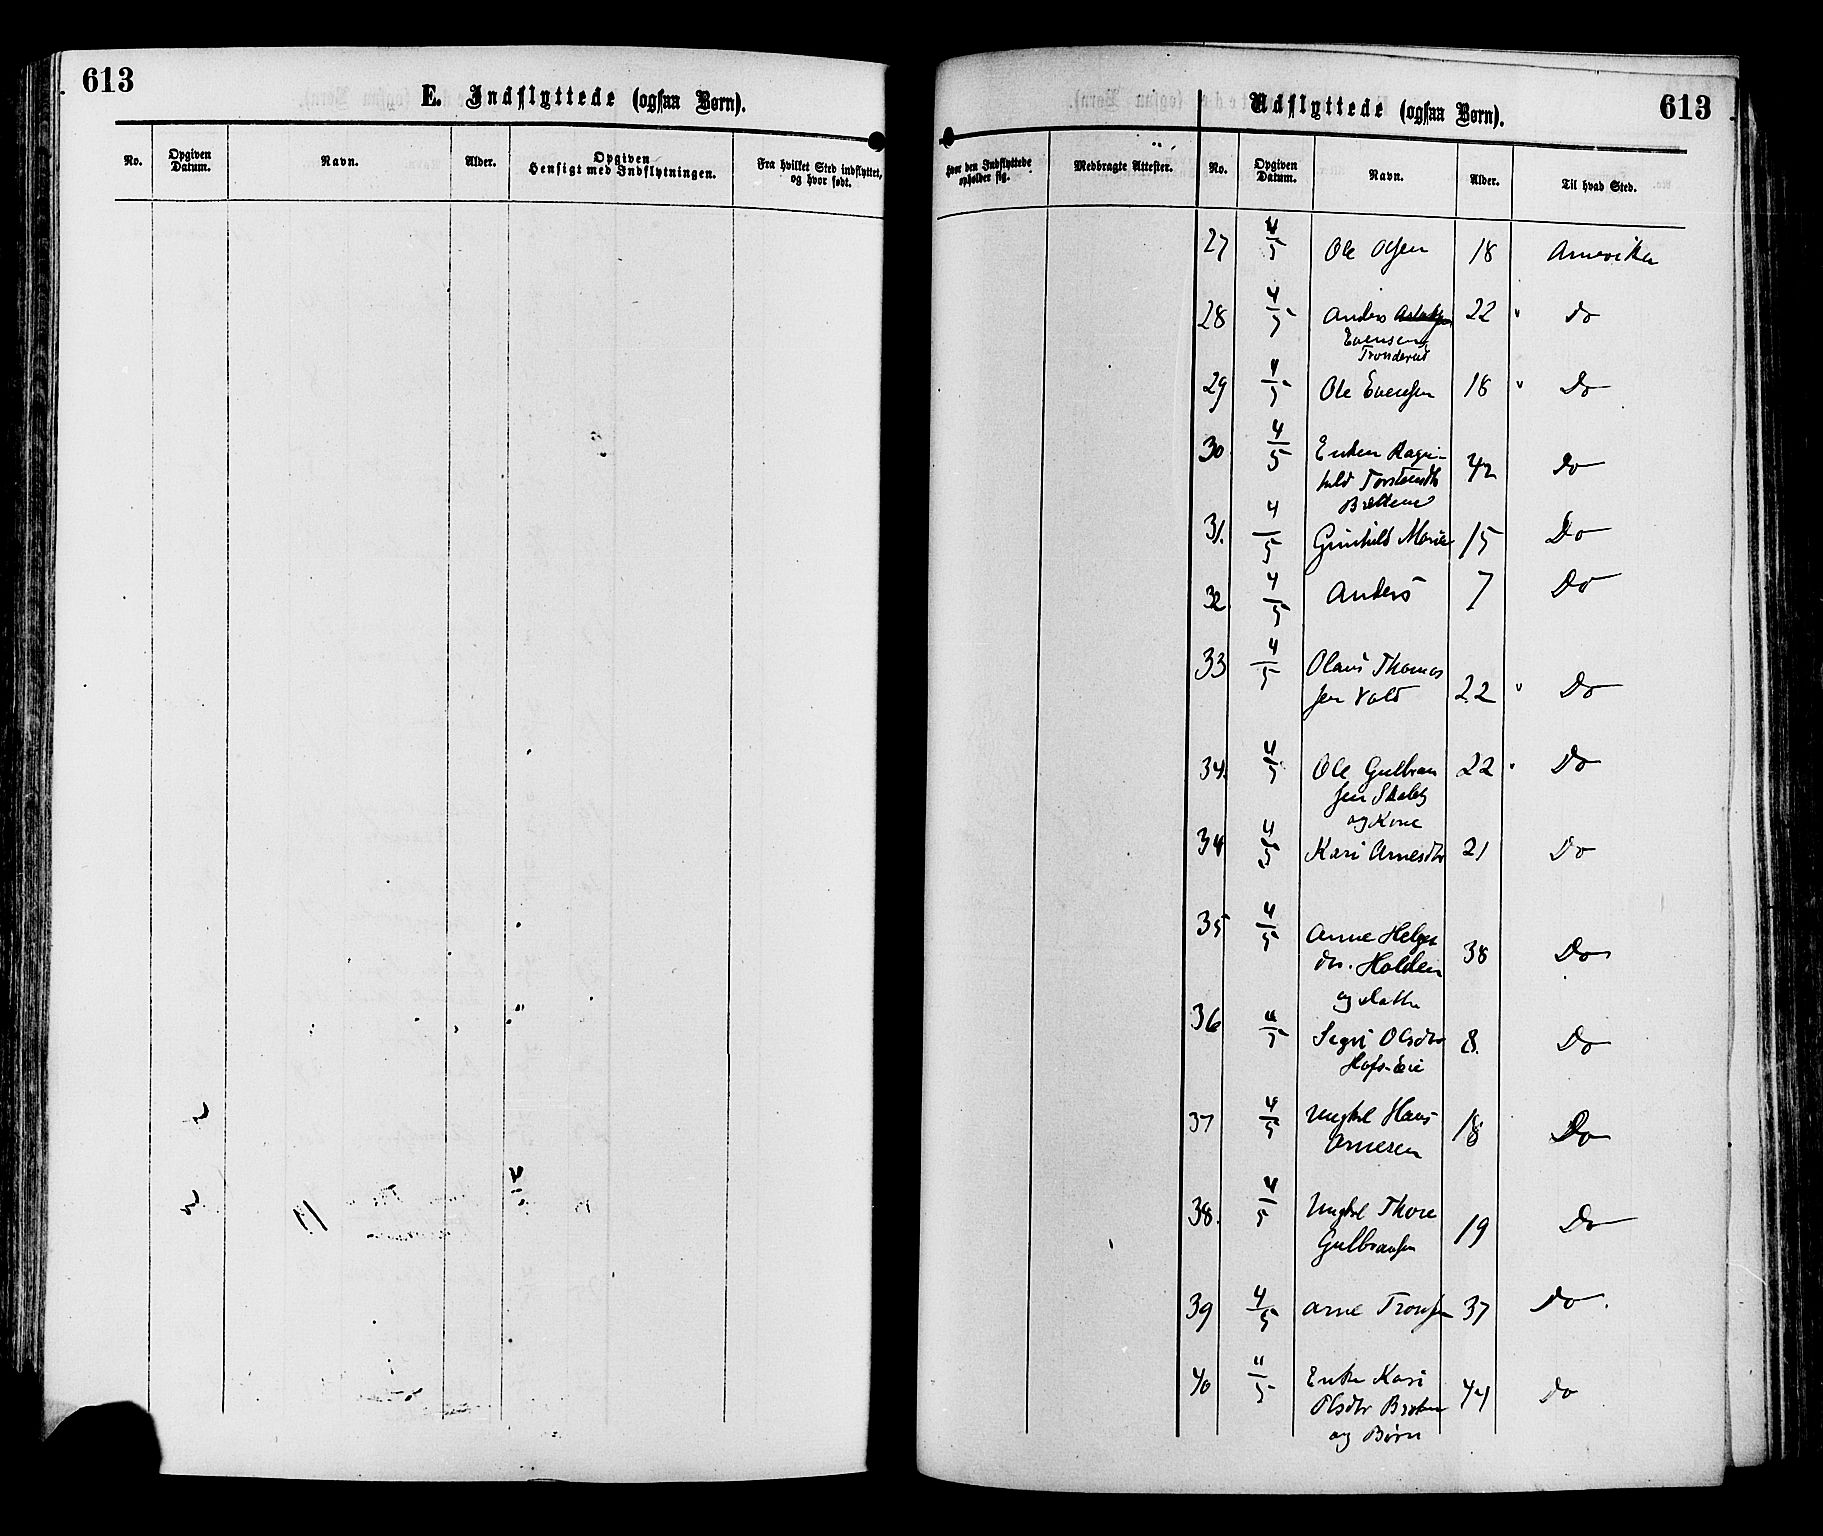 613
E. Indflyttede (ogsaa Børn).
No.
Opgiven Datum.
Navn.
Alder.
Opgiven Hensigt med Indflytningen.
Fra hvilket Sted indflyttet, og hvor født.
Udflyttede (ogsaa Børn).
613
Hvor den Indflyttede opholder sig.
Medbragte Attester.
No.
Opgiven Datum.
Navn.
Alder.
Til hvad Sted.
27 4/5 Ole Olsen 18 Amerika
28 4/5 Anders 22 " Do
Evensen
Tronderud
29 4/5 Ole Evensen 18 " Do
30 4/5 Enken Ragn-
hild Torstensdtr 42 Do
31. 4/5 Gunhild Marie 15 Do
32 4/5 Anders 7 Do
33 4/5 Olaus Thomas
sen Vold 22 " Do
34. 4/5 Ole Gulbran 22 " Do
sen
og Kone
34 4/5 Kari Arnesdtr 21 Do
35 4/5 Anne Helges
dtr. Halden 38 Do
og Datter
36 4/5 Sigri Olsdtr 8. Do
37 4/5 Ungkl Hans
Arnesen 18 Do
38. 4/5 Ungkl Thore
Gulbransen 19 Do
39 4/5 Arne Tronsen 37 Do.
40 4/5 Enke Kari
Olsdtr Braten 44 Do
og Børn